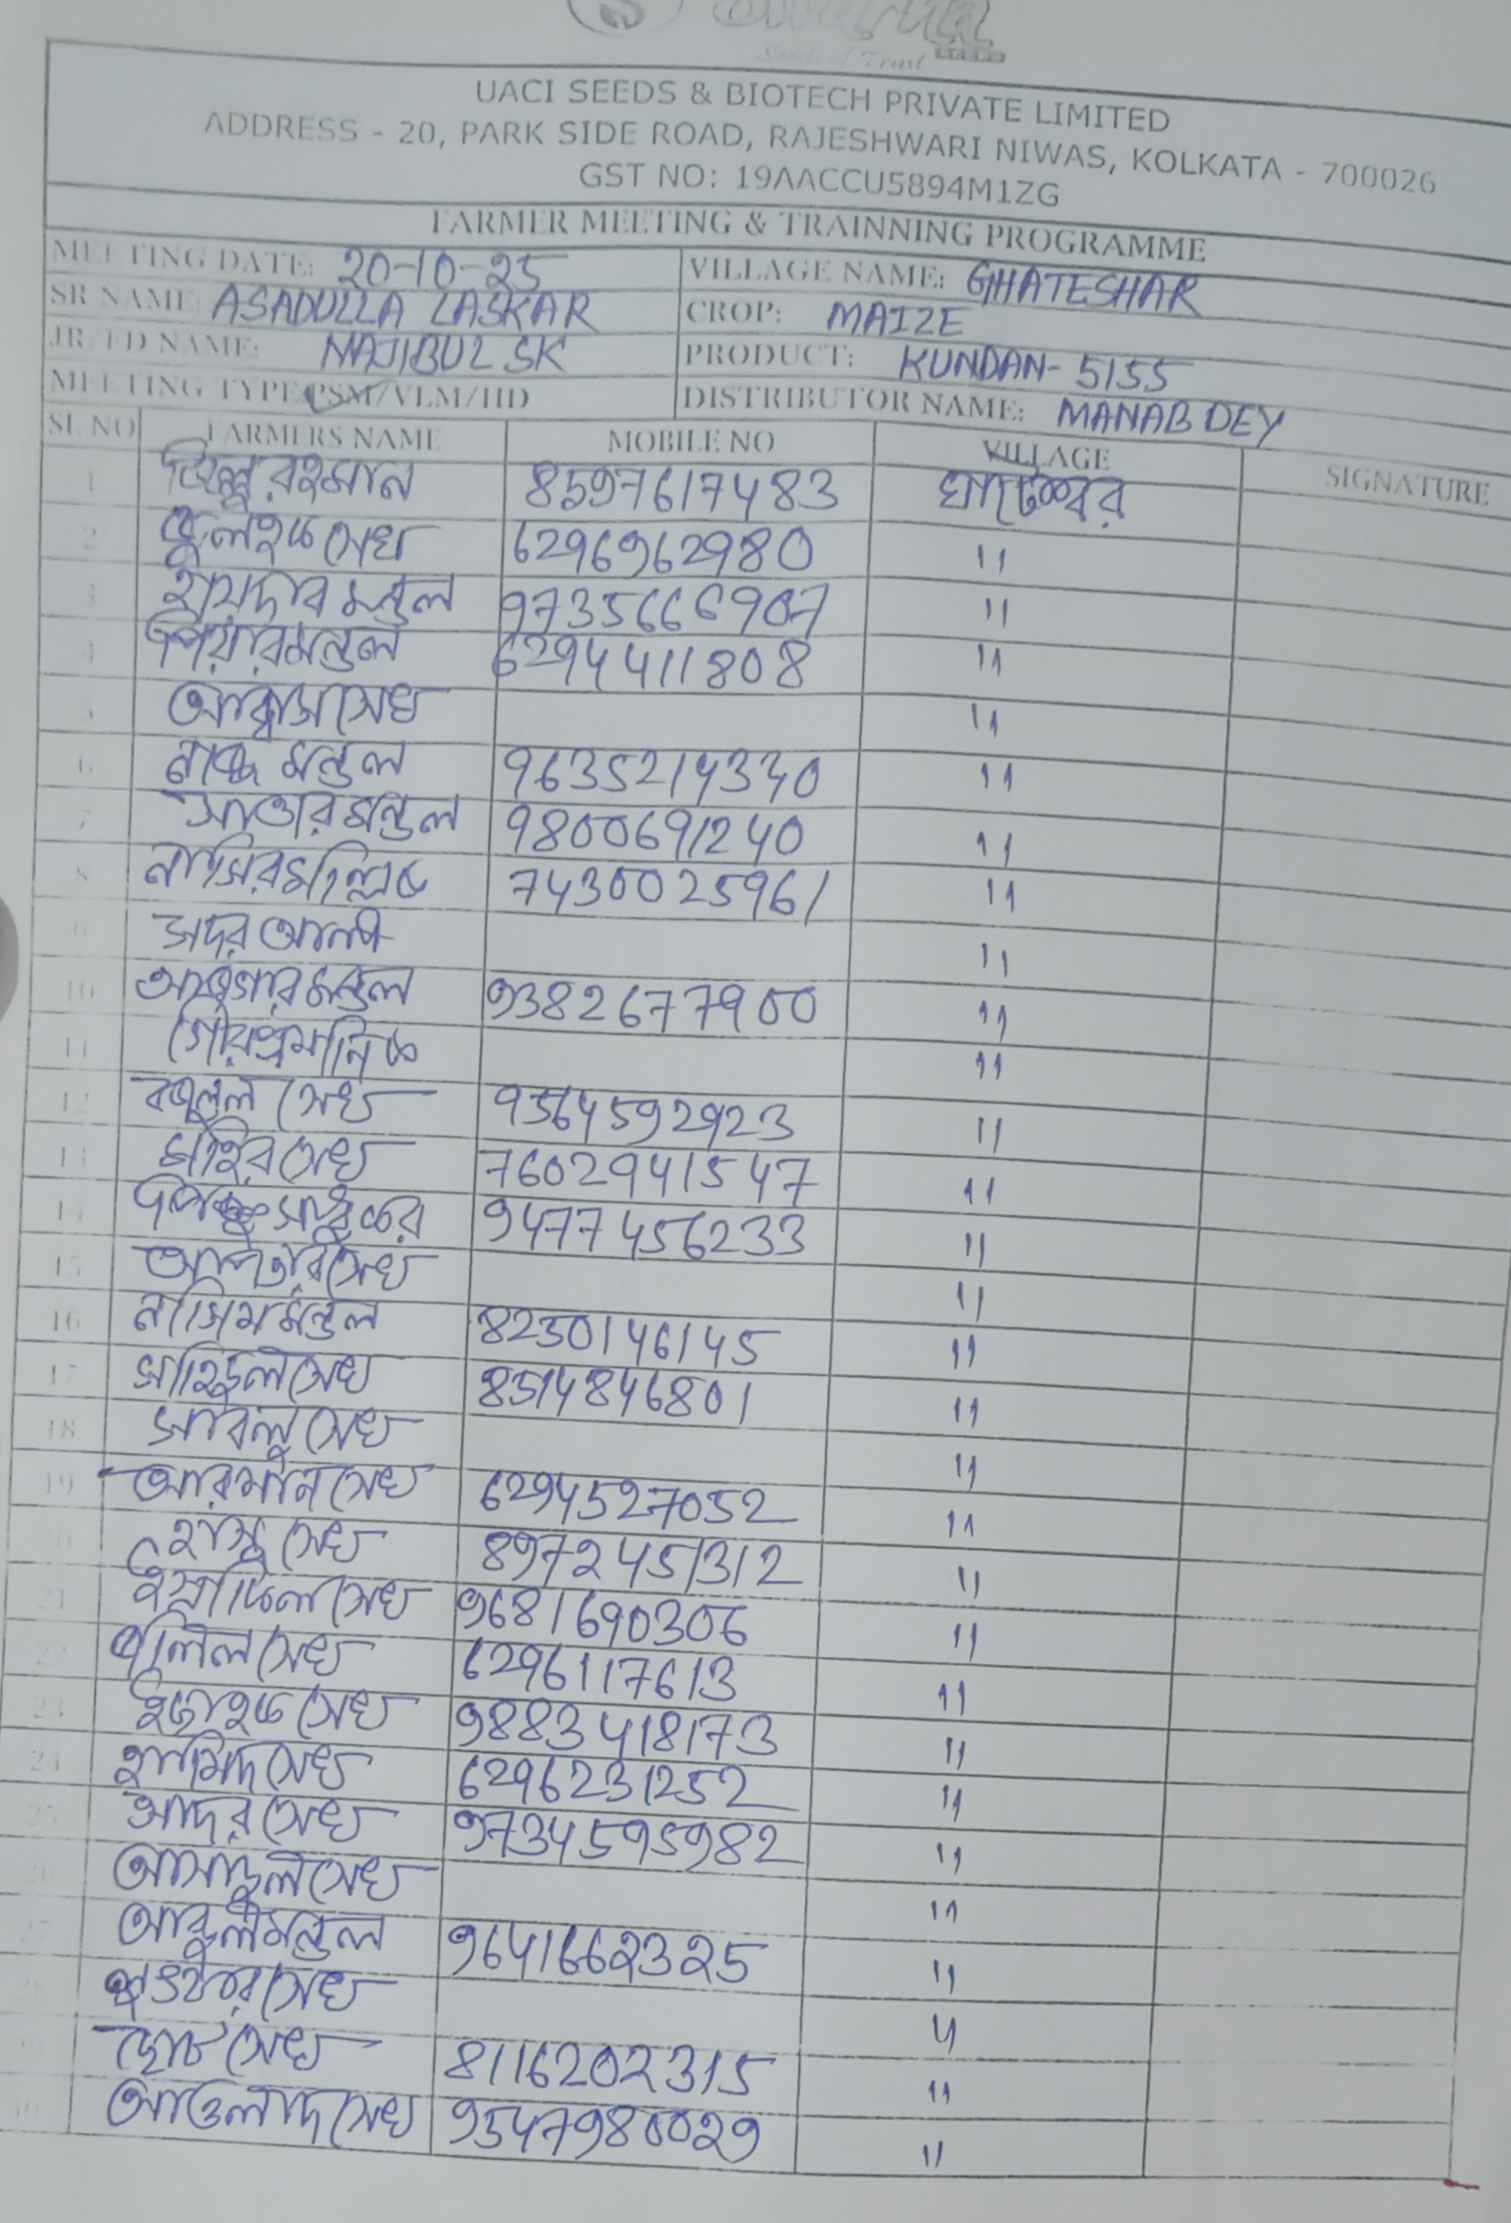 Seeds of Trust
UACI SEEDS & BIOTECH PRIVATE LIMITED
ADDRESS - 20, PARK SIDE ROAD, RAJESHWARI NIWAS, KOLKATA - 700026
GST NO: 19AACCU5894M1ZG
FARMER MEETING & TRAINNING PROGRAMME
MEETING DATE: 20-10-25 VILLAGE NAME: GHATESHAR
SR NAME: ASADULLA LASKAR CROP: MAIZE
JR/FD NAME: MAJIBUL SK PRODUCT: KUNDAN-5155
MEETING TYPE: PSM/VLM/HD DISTRIBUTOR NAME: MANAB DEY
SL NO FARMERS NAME MOBILE NO VILLAGE SIGNATURE
1 রহমান 8597617483 ঘাটেশ্বর
2 সেখ 6296962980 11
3 হায়দার মন্ডল 9735666907 11
4 পিয়ার মন্ডল 6294411808 11
5 আব্বাস সেখ 11
6 মন্ডল 9635214330 11
7 সাত্তার মন্ডল 9800691240 11
8 নাসির মল্লিক 7430025961 11
9 সদর আলী 11
10 মন্ডল 9382677900 11
11 প্রমানিক 11
12 বজলুল সেখ 9564592923 11
13 সেখ 7602941547 11
14 9477456233 11
15 সেখ 11
16 নাসিম মন্ডল 8250146145 11
17 সেখ 8514846801 11
18 সাবলু সেখ 11
19 আরমান সেখ 6294527052 11
20 সেখ 8972451312 11
21 সেখ 9681690306 11
22 সেখ 6296117613 11
23 সেখ 9883418173 11
24 হামিদ সেখ 6296231252 11
25 আদর সেখ 9734595982 11
26 আসাদুল সেখ 11
27 আবুল মন্ডল 9641662325 11
28 সেখ 11
29 ছোট সেখ 8116202315 11
30 আওলাদ সেখ 9547980029 11